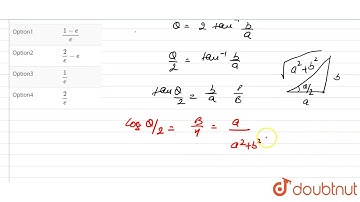 Option1 (1-e)/e
Option2 2/e - e
Option3 1/e
Option4 2/e
Q = 2 tan⁻¹ b/a
Q/2 = tan⁻¹ b/a
tan Q/2 = b/a P/B
Cos Q/2 = B/H = a/a²+b²
a²+b²
b
a
doubtnut